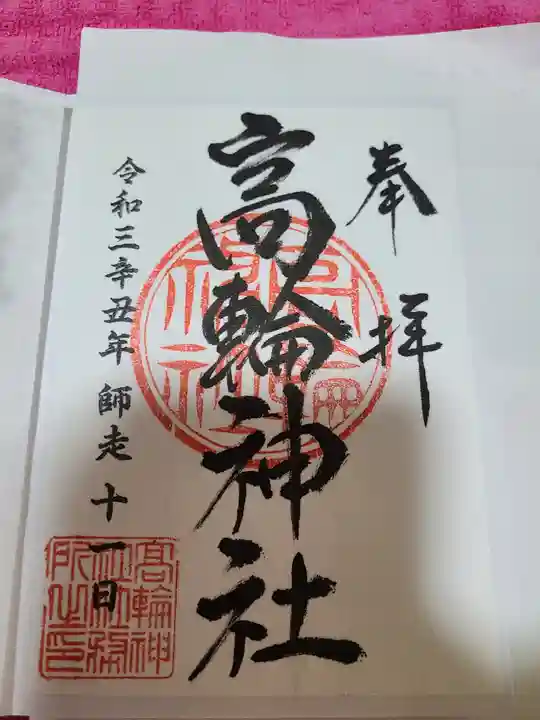 奉拝
高輪神社
令和三辛丑年 師走 十一日
高輪神社社務所之印